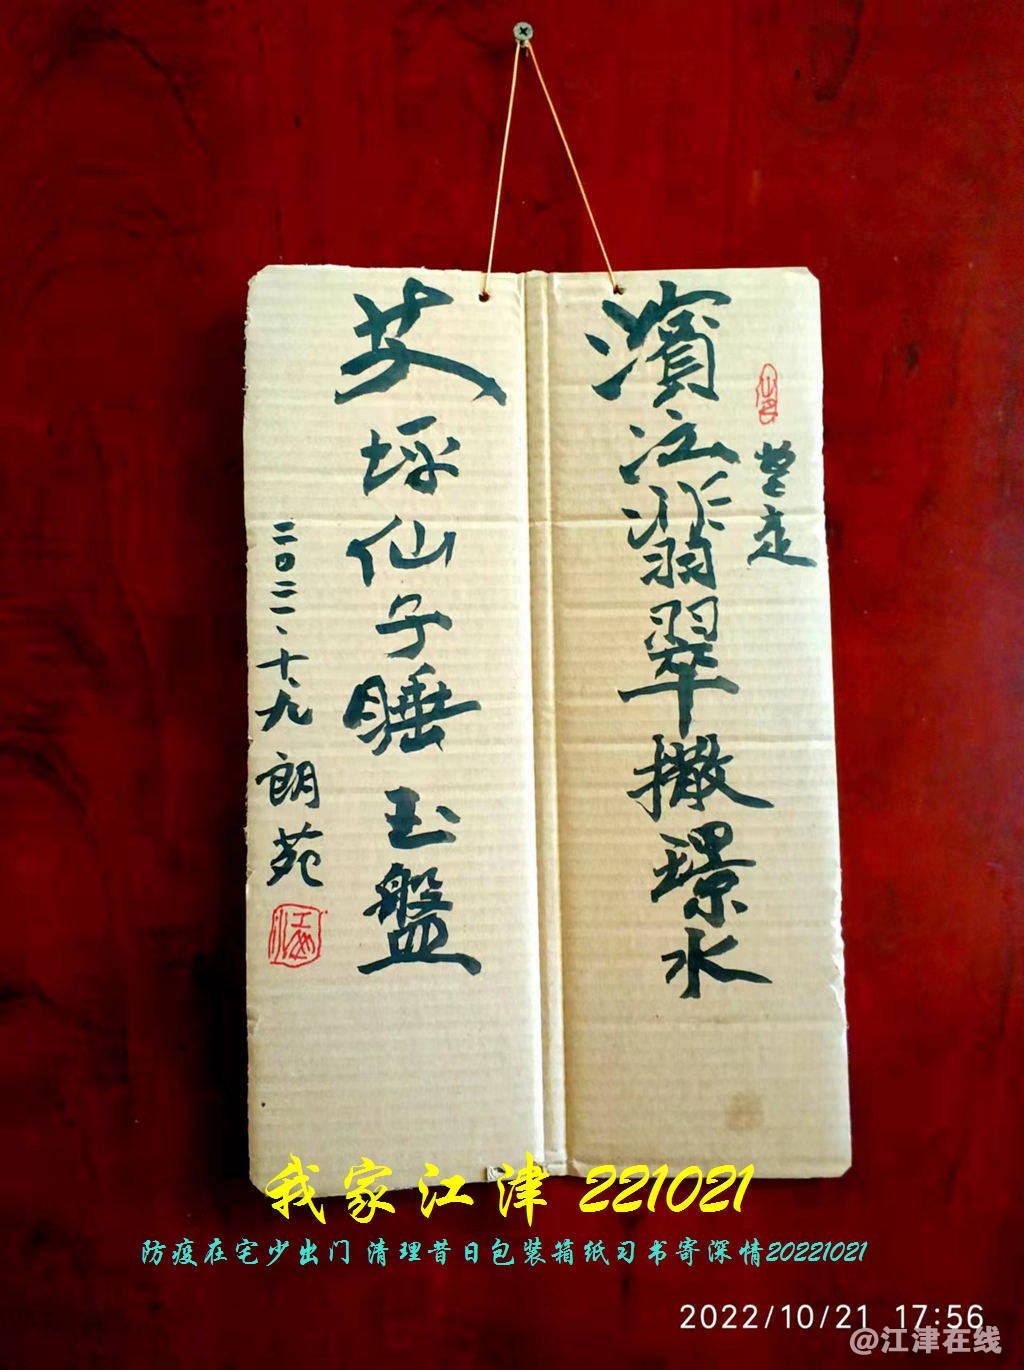 濱江翡翠撒璟水
艾坪仙子睡玉盤
二〇二二、十、九 朗苑
我家江津 221021
防疫在宅少出门 清理昔日包装箱纸习书寄深情20221021
2022/10/21 17:56
@江津在线